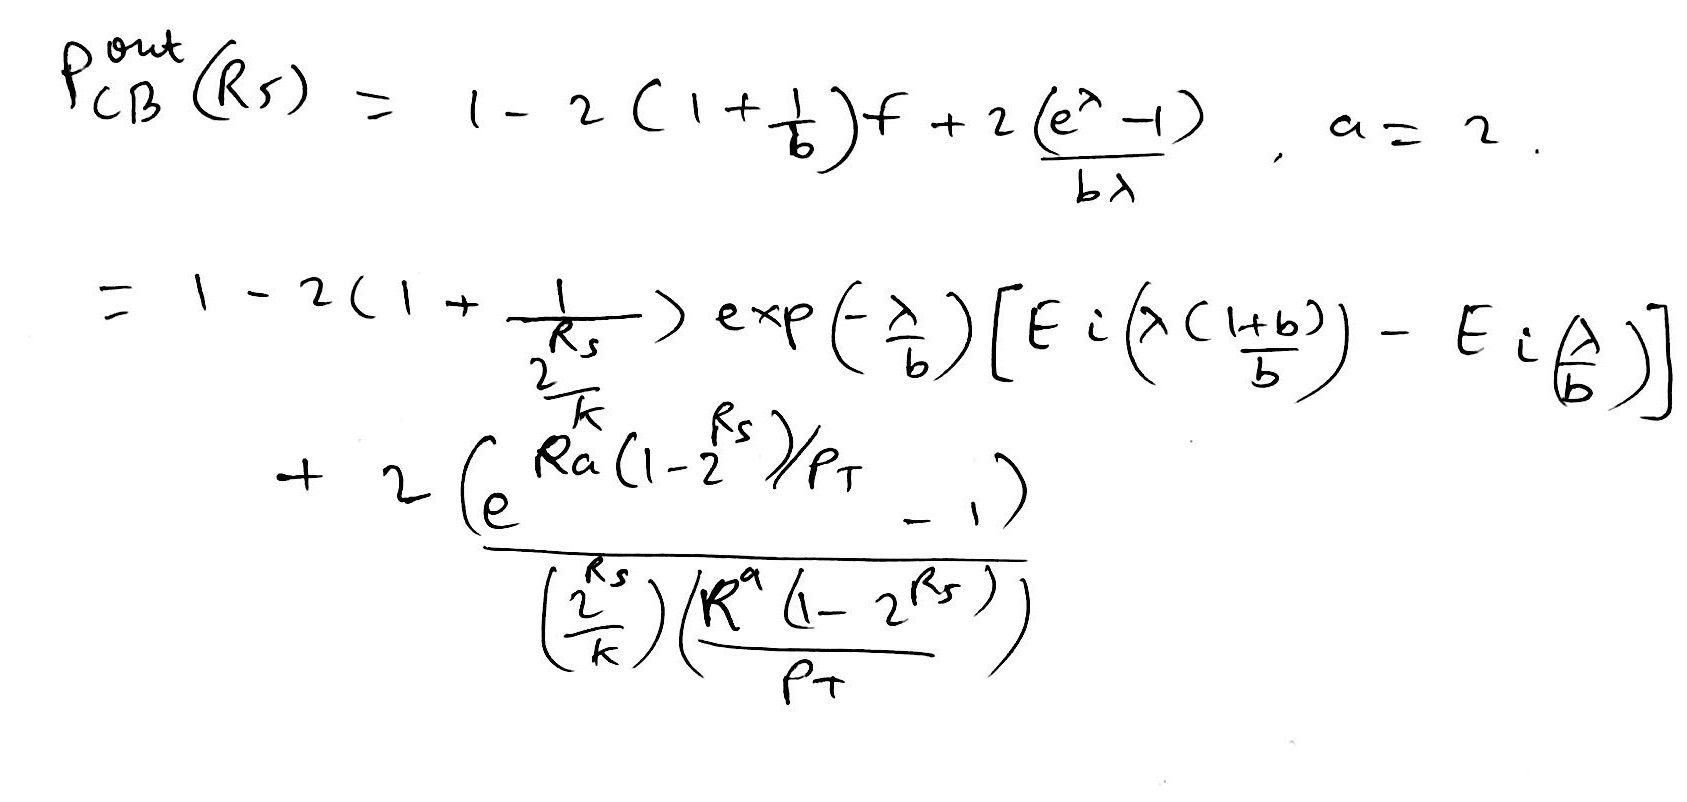 P_{CB}^{out}(R_s) = 1 - 2(1 + \frac{1}{b})f + \frac{2(e^λ - 1)}{bλ}, a = 2.
= 1 - 2(1 + \frac{1}{\frac{2^{R_s}}{k}}) exp(-\frac{λ}{b}) [Ei(λ(\frac{1+b}{b})) - Ei(\frac{λ}{b})]
+ \frac{2(e^{Ra(1-2^{R_s})/P_T} - 1)}{(\frac{2^{R_s}}{k})(\frac{R^a(1-2^{R_s})}{P_T})}